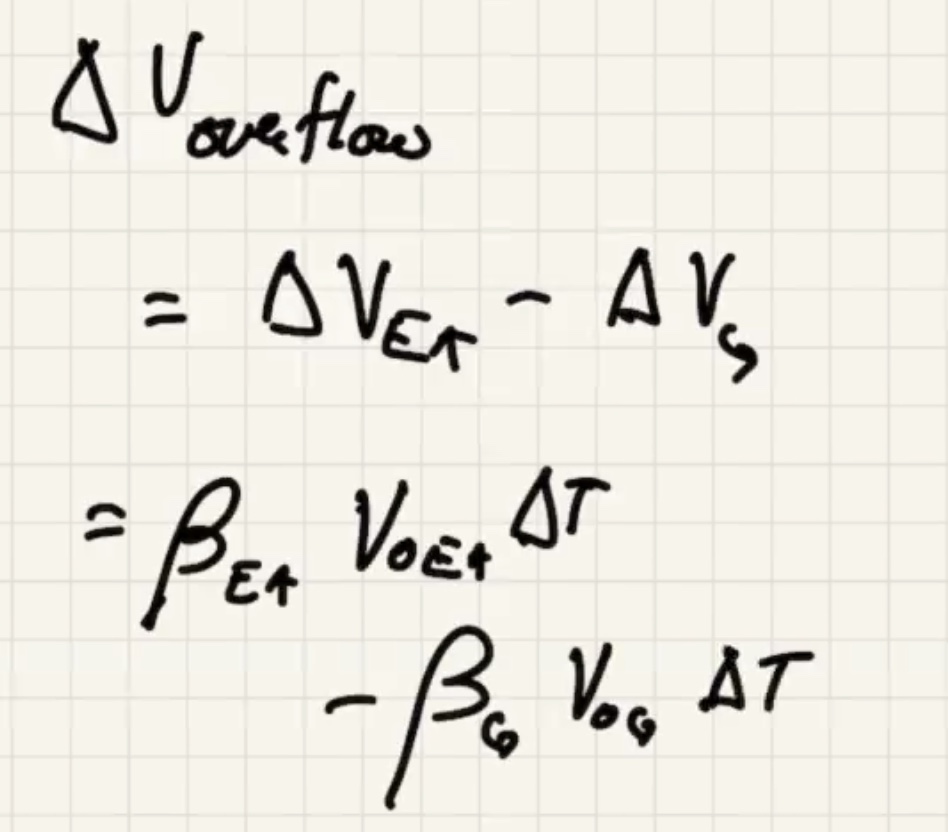 ΔV_overflow
= ΔV_Et - ΔV_G
= β_Et V_0Et ΔT
- β_G V_0G ΔT